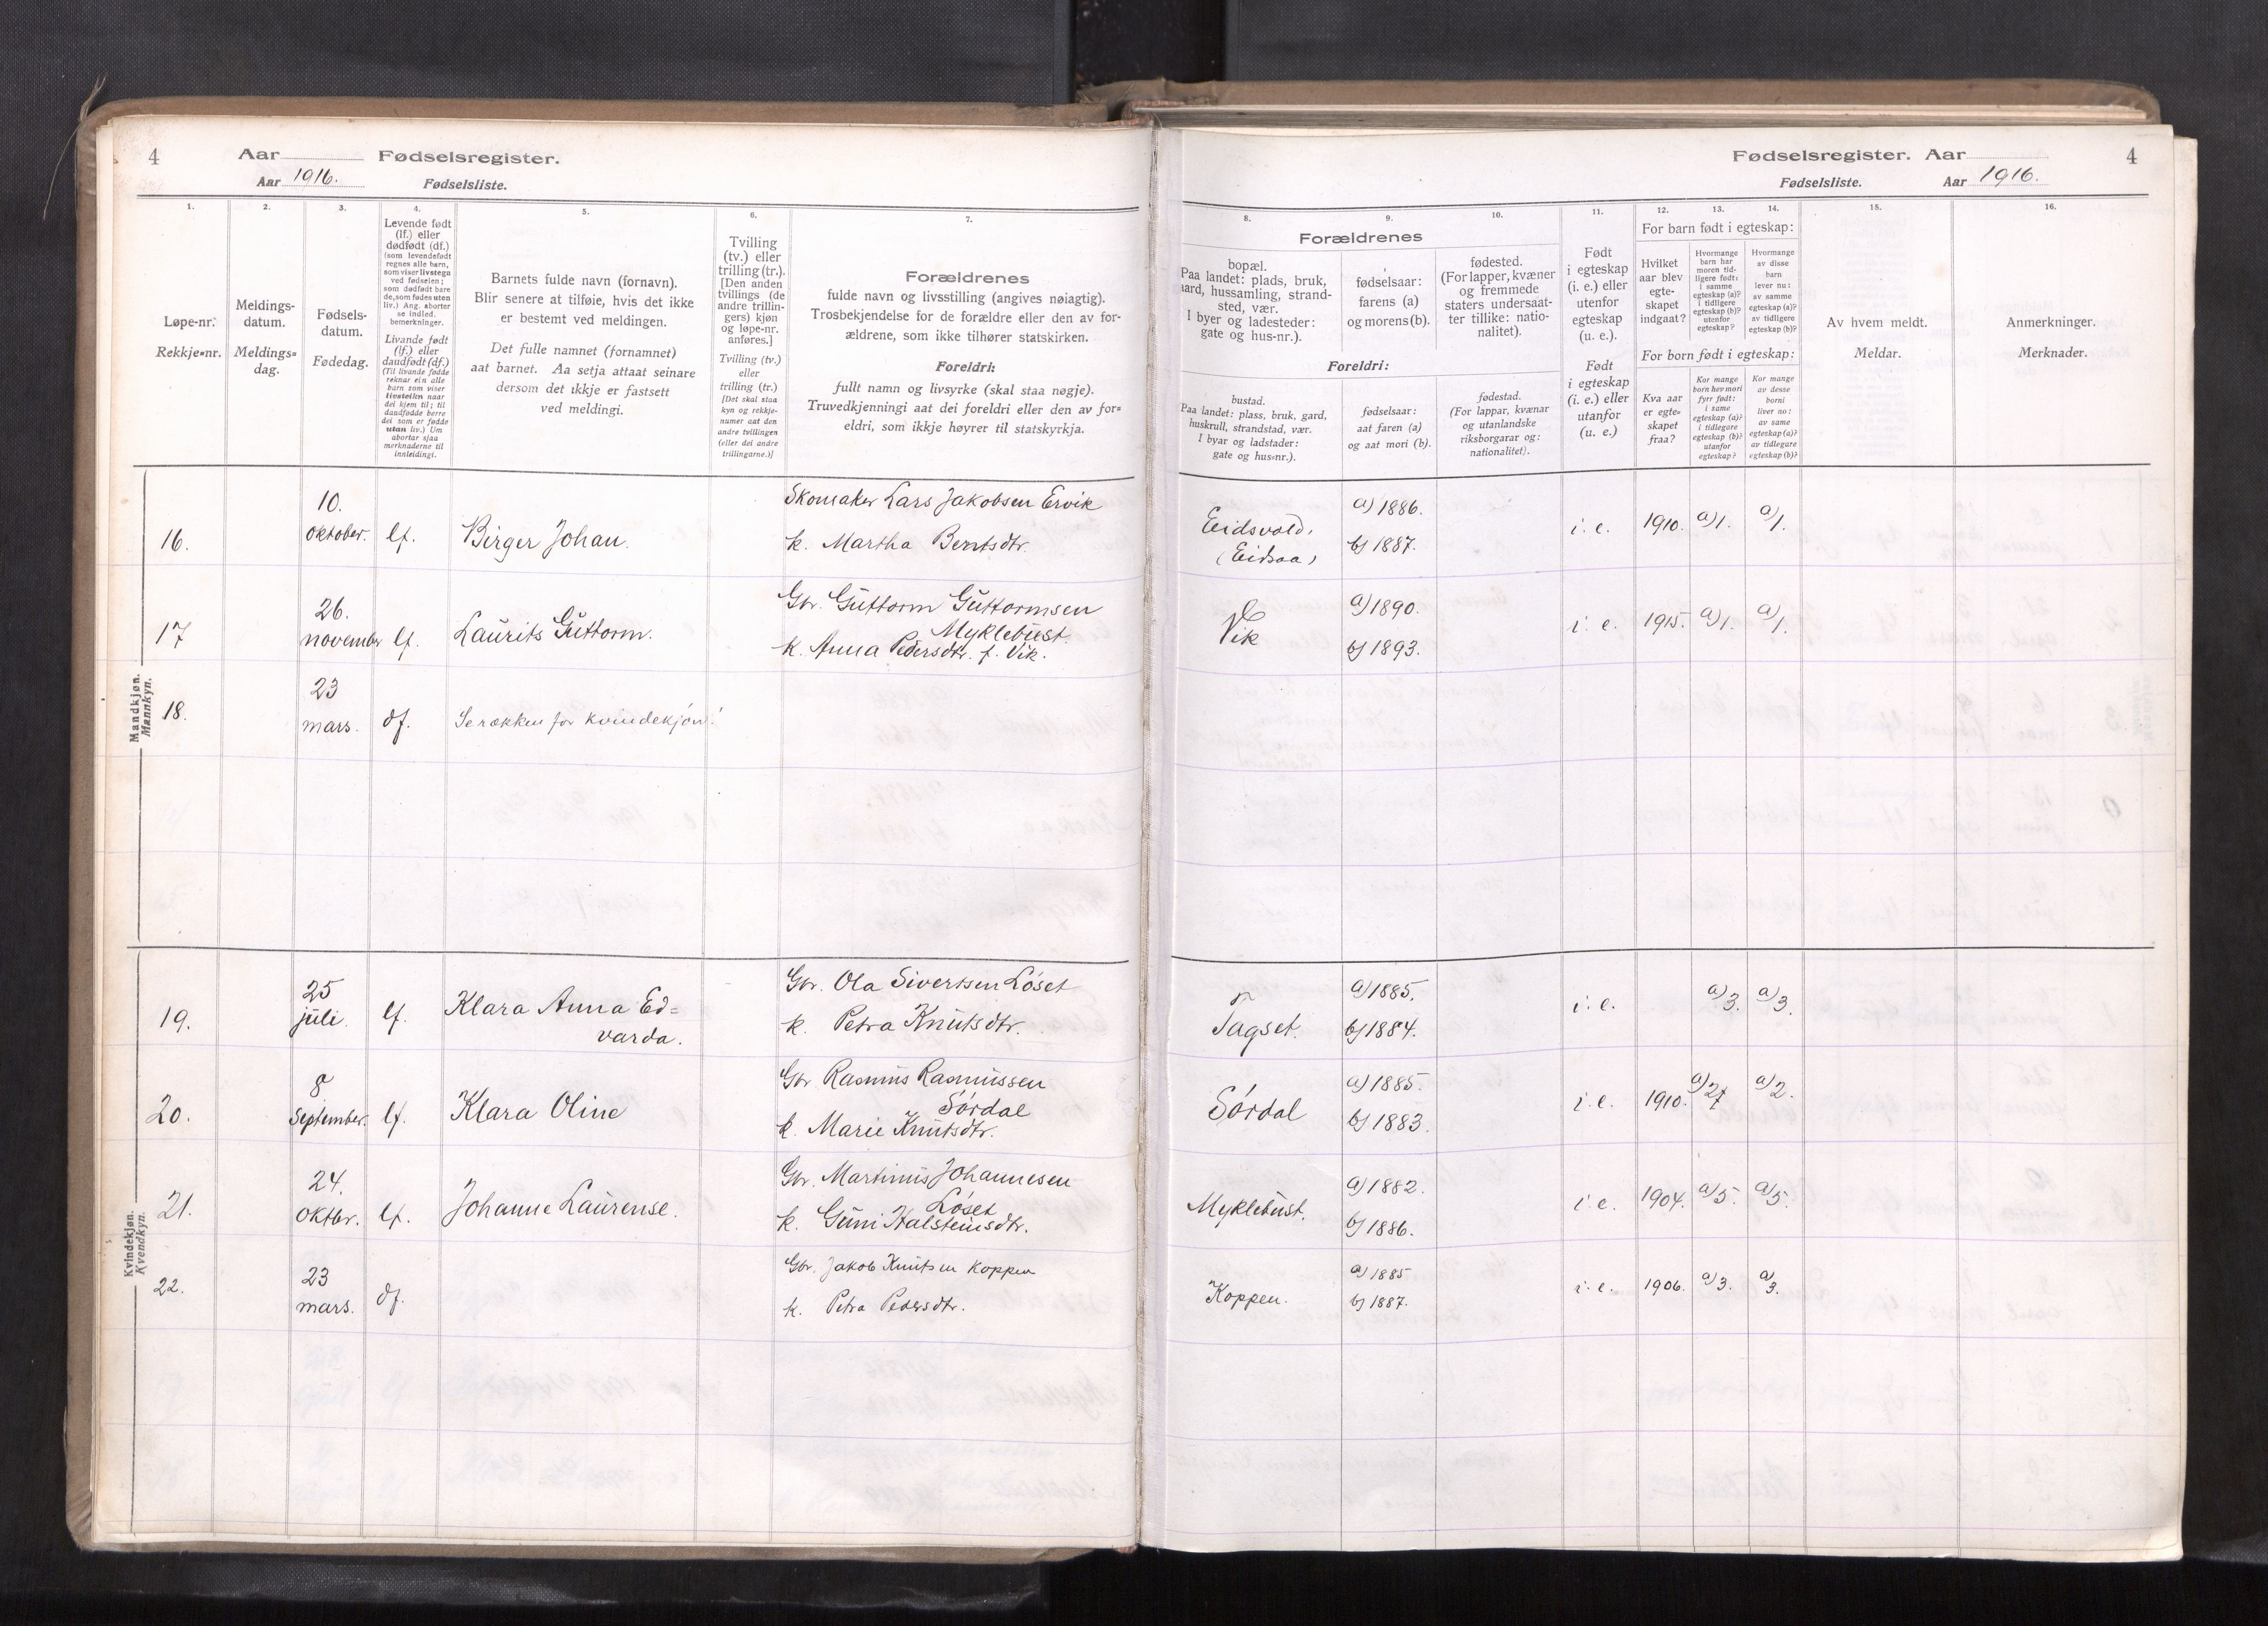 4
Aar
Fødselsregister.
Aar 1916.
Fødselsliste.
1.
2.
3.
4.
5.
6.
7.
Løpe-nr.
Rekkje-nr.
Meldings-
datum.
Meldings=
dag.
Fødsels-
datum.
Fødedag.
Levende født
(lf.) eller
dødfødt (df.)
(som levendefødt
regnes alle barn,
som viser livstegn
ved fødselen;
som dødfødt bare
de, som fødes uten
liv.) Ang. aborter
se indled.
bemerkninger.
Livande født
(lf.) eller
daudfødt (df.)
(Til livande fødde
reknar ein alle
barn som viser
livsteikn naar
dei kjem til; til
daudfødde berre
dei som er fødde
utan liv.) Um
abortar sjaa
merknaderne til
innleidingi.
Barnets fulde navn (fornavn).
Blir senere at tilføie, hvis det ikke
er bestemt ved meldingen.
Det fulle namnet (fornamnet)
aat barnet. Aa setja attaat seinare
dersom det ikkje er fastsett
ved meldingi.
Tvilling
(tv.) eller
trilling (tr.).
[Den anden
tvillings (de
andre trillin-
gers) kjøn
og løpe-nr.
anføres.]
Tvilling (tv.)
eller
trilling (tr.)
[Det skal staa
kyn og rekkje-
numer aat den
andre tvillingen
(eller dei andre
trillingarne.)]
Forældrenes
fulde navn og livsstilling (angives nøiagtig).
Trosbekjendelse for de forældre eller den av for-
ældrene, som ikke tilhører statskirken.
Foreldri:
fullt namn og livsyrke (skal staa nøgje).
Truvedkjenningi aat dei foreldri eller den av for=
eldri, som ikkje høyrer til statskyrkja.
Mandkjøn.
Mannkyn.
16.
10.
oktober.
lf.
Birger Johan.
Skomaker Lars Jakobsen Ervik
k. Martha Berntsdtr.
17
26.
november
lf.
Laurits Guttorm.
Gbr. Guttorm Guttormsen
Myklebust.
k. Anna Pedersdtr. f. Vik.
18.
23
mars.
df.
Se rækken for kvindekjøn!
Kvindekjøn.
Kvendkyn.
19.
25
juli.
lf.
Klara Anna Ed=
varda.
Gbr. Ola Sivertsen Løset
k. Petra Knutsdtr.
20.
8
September.
lf.
Klara Oline
Gbr Rasmus Rasmussen
Sørdal
k. Marie Knutsdtr.
21.
24.
Oktbr.
lf.
Johanne Laurense.
Gbr. Martinus Johannesen
Løset
k. Guni Halsteinsdtr.
22.
23
mars.
df.
Gbr. Jakob Knutsen Koppen
k. Petra Pedersdtr.
Fødselsregister. Aar
4
Fødselsliste.
Aar 1916.
8.
9.
10.
11.
12.
13.
14.
15.
16.
Forældrenes
bopæl.
Paa landet: plads, bruk,
gaard, hussamling, strand-
sted, vær.
I byer og ladesteder:
gate og hus-nr.).
fødselsaar:
farens (a)
og morens (b).
fødested.
(For lapper, kvæner
og fremmede
staters undersaat-
ter tillike: natio-
nalitet).
Foreldri:
bustad.
Paa landet: plass, bruk, gard,
huskrull, strandstad, vær.
I byar og ladstader:
gate og hus=nr.).
fødselsaar:
aat faren (a)
og aat mori (b).
fødestad.
(For lappar, kvænar
og utanlandske
riksborgarar og:
nationalitet).
Født
i egteskap
(i. e.) eller
utenfor
egteskap
(u. e.).
Født
i egteskap
(i. e.) eller
utanfor
(u. e.)
For barn født i egteskap:
Hvilket
aar blev
egte-
skapet
indgaat?
Hvormange
barn har
moren tid-
ligere født:
i samme
egteskap (a)?
i tidligere
egteskap (b)?
utenfor
egteskap?
Hvormange
av disse
barn
lever nu:
av samme
egteskap (a)?
av tidligere
egteskap (b)?
For born født i egteskap:
Kva aar
er egte-
skapet
fraa?
Kor mange
born hev mori
fyrr født:
i same
egteskap (a)?
i tidlegare
egteskap (b)?
utanfor
egteskap?
Kor mange
av desse
borni
liver no:
av same
egteskap (a)?
av tidlegare
egteskap (b)?
Av hvem meldt.
Meldar.
Anmerkninger.
Merknader.
Eidsvold.
(Eidsaa)
a) 1886.
b) 1887.
i. e.
1910.
a) 1.
a) 1.
Vik
a) 1890.
b) 1893.
i. e.
1915.
a) 1.
a) 1.
Tagset.
a) 1885.
b) 1884.
i. e.
a) 3.
a) 3.
Sørdal
a) 1885.
b) 1883.
i. e.
1910.
a) 2
a) 2.
Myklebust.
a) 1882.
b) 1886.
i. e.
1904.
a) 5.
a) 5.
Koppen.
a) 1885
b) 1887.
i. e.
1906.
a) 3.
a) 3.